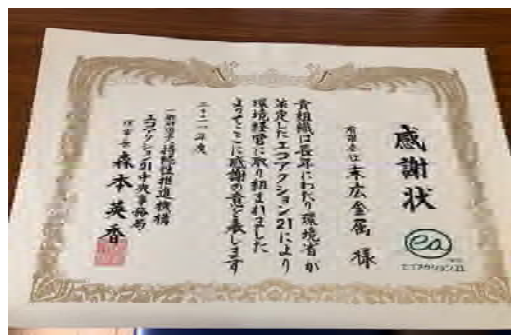 感謝状
エコアクション21
有限会社 末広金属 様
貴組織は長年にわたり環境省が
策定したエコアクション21により
環境経営に取り組まれました
よってここに感謝の意を表します
二〇二一年度
一般財団法人 持続性推進機構
エコアクション21中央事務局
理事長 森本英香